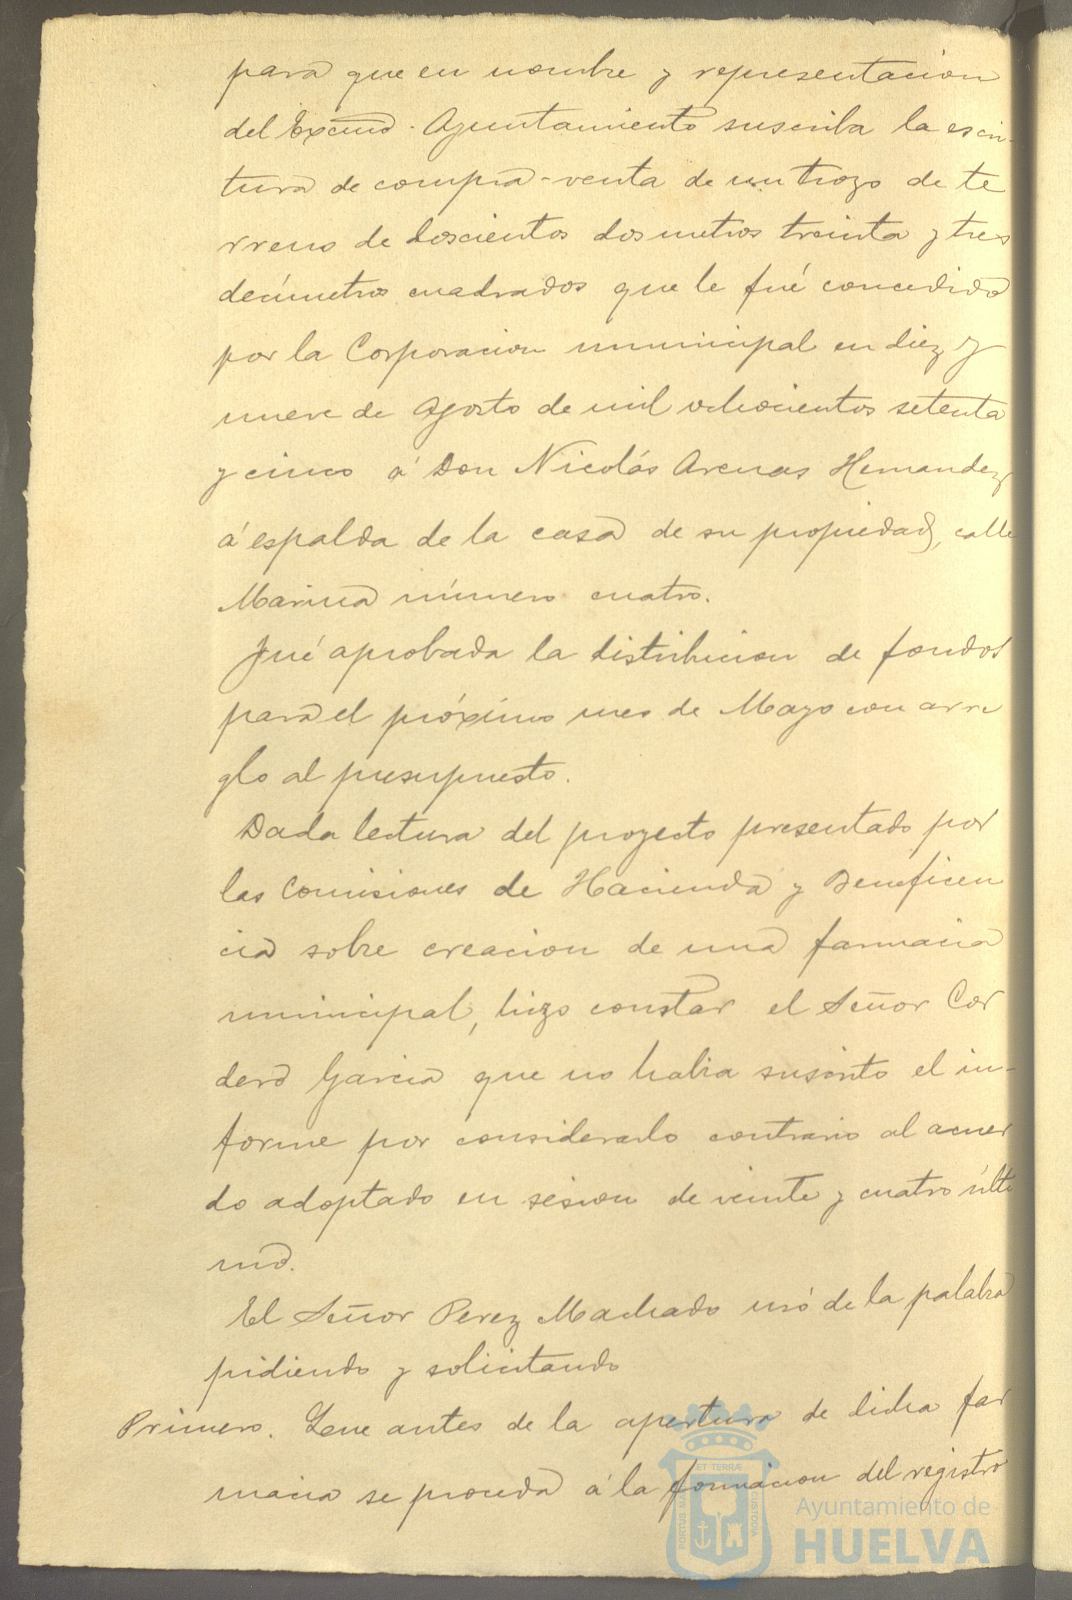 para que en nombre y representacion
del Excmo. Ayuntamiento suscriba la escri-
tura de compra-venta de un trozo de te
rreno de doscientos dos metros treinta y tres
decimetros cuadrados que le fué concedido
por la Corporacion municipal en diez y
nueve de Agosto de mil ochocientos setenta
y cinco á Don Nicolás Arenas Hernandez
á espalda de la casa de su propiedad, calle
Marina número cuatro.
Fué aprobada la distribucion de fondos
para el próximo mes de Mayo con arre
glo al presupuesto.
Dada lectura del proyecto presentado por
las Comisiones de Hacienda y Beneficen
cia sobre creacion de una farmacia
municipal, hizo constar el Señor Cor
dero Garcia que no habia suscrito el in-
forme por considerarlo contrario al acuer
do adoptado en sesion de veinte y cuatro últi
mo.
El Señor Perez Machado usó de la palabra
pidiendo y solicitando
Primero. Que antes de la apertura de dicha far
macia se proceda á la formacion del registro
ET TERRÆ
PORTUS MARIS
CUSTODIA
Ayuntamiento de
HUELVA